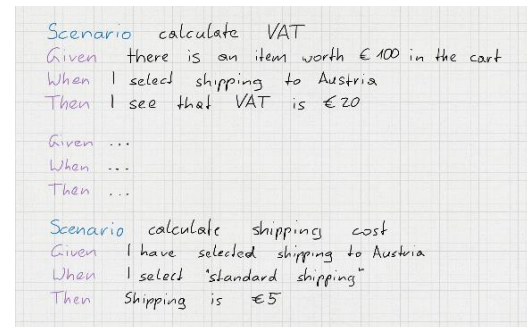 Scenario calculate VAT
Given there is an item worth € 100 in the cart
When I select shipping to Austria
Then I see that VAT is €20
Given ...
When ...
Then ...
Scenario calculate shipping cost
Given I have selected shipping to Austria
When I select "standard shipping"
Then Shipping is €5